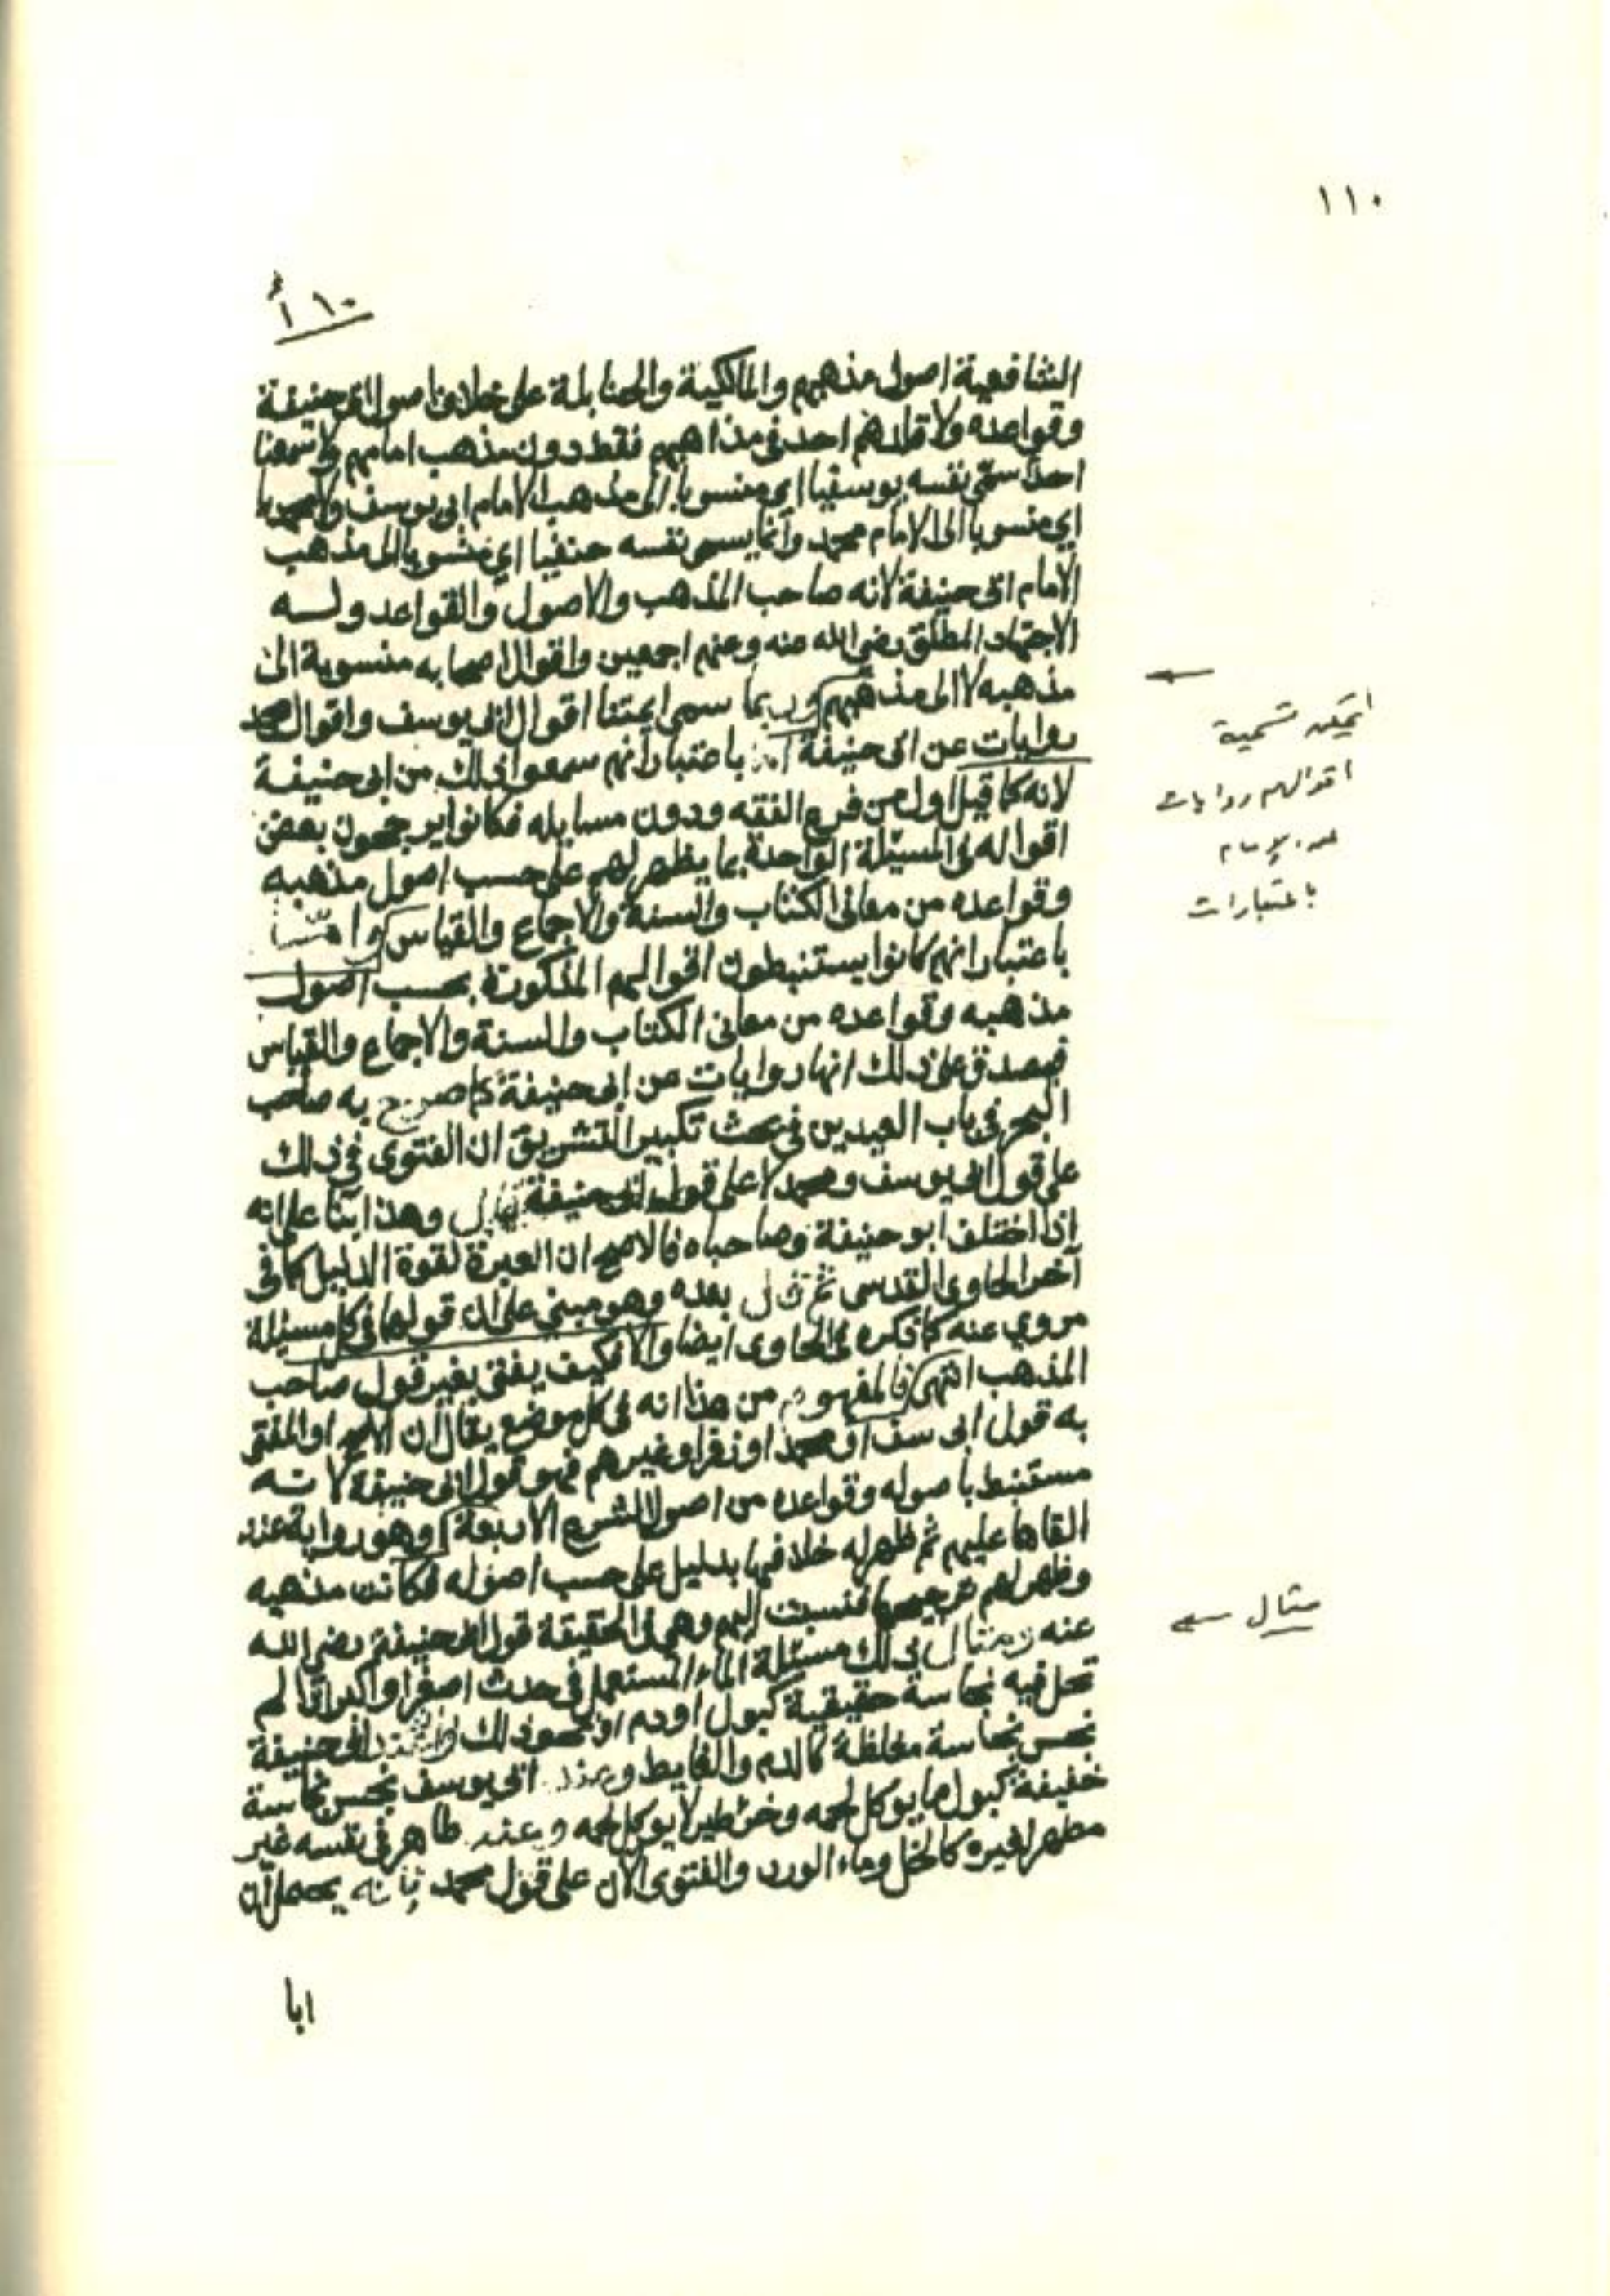 ١١٠
١٠ أ
الشافعية اصول مذهبهم والمالكية والحنابلة على خلاف اصول ابى حنيفة
وقواعده ولا قلدهم احد فى مذاهبهم فقط دون مذهب امامهم ولا سمعنا
احدا سمّى نفسه يوسفيا اى منسوبا الى مذهب الامام ابى يوسف ولا محمديا
اي منسوبا الى الامام محمد وانما يسمى نفسه حنفيا اي منسوبا الى مذهب
الامام ابى حنيفة لانه صاحب المذهب والاصول والقواعد وله
الاجتهاد المطلق رضى الله عنه وعنهم اجمعين واقوال اصحابه منسوبة الى
مذهبه لا الى مذهبهم وربما سمى ايمتنا اقوال ابى يوسف واقوال محمد
روايات عن ابى حنيفة اما باعتبار انهم سمعوا ذلك من ابى حنيفة
لانه كما قيل اول من فرع الفقه ودون مسايله فكانوا يرجحون بعض
اقواله فى المسئلة الواحدة بما يظهر لهم على حسب اصول مذهبه
وقواعده من معانى الكتاب والسنة والاجماع والقياس وامّا
باعتبار انهم كانوا يستنبطون اقوالهم المذكورة بحسب اصول
مذهبه وقواعده من معانى الكتاب والسنة والاجماع والقياس
فيصدق على ذلك انها روايات عن ابى حنيفة كما صرح به صاحب
البحر فى باب العيدين فى بحث تكبير التشريق ان الفتوى فى ذلك
على قول ابى يوسف ومحمد لا على قول ابى حنيفة قال وهذا بنا على انه
اذا اختلف ابو حنيفة وصاحباه فالاصح ان العبرة لقوة الدليل كما فى
آخر الحاوى القدسى ثم قال بعده وهو مبنى على ان قولهما فى كل مسئلة
مروي عنه كما ذكره فى الحاوى ايضا والا فكيف يفتى بغير قول صاحب
المذهب انتهى فالمفهوم من هذا انه فى كل موضع يقال ان الاصح او المفتى
به قول ابى سف او محمد او زفر او غيرهم فهو قول ابى حنيفة لانه
مستنبط باصوله وقواعده من اصول الشرع الاربعة وهو رواية عنه
القاها عليهم ثم ظهر له خلافها بدليل على حسب اصوله فكانت مذهبه
وظهر لهم ترجيحها فنسبت اليهم وهى فى الحقيقة قول ابى حنيفة رضى الله
عنه ومثال ذلك مسئلة الماء المستعمل فى حدث اصغر او اكبر اذا لم
تحل فيه نجاسة حقيقية كبول او دم او نحو ذلك فعند ابى حنيفة
نجس نجاسة مغلظة كالدم والغايط وعند ابى يوسف نجس نجاسة
خفيفة كبول ما يوكل لحمه وخرء طير لا يوكل لحمه وعند طاهر فى نفسه غير
مطهر لغيره كالخل وماء الورد والفتوى الان على قول محمد فانه يحتمل ان
ابا
تسمية
اقوالهم روايات
عن الإمام
باعتبارات
مثال